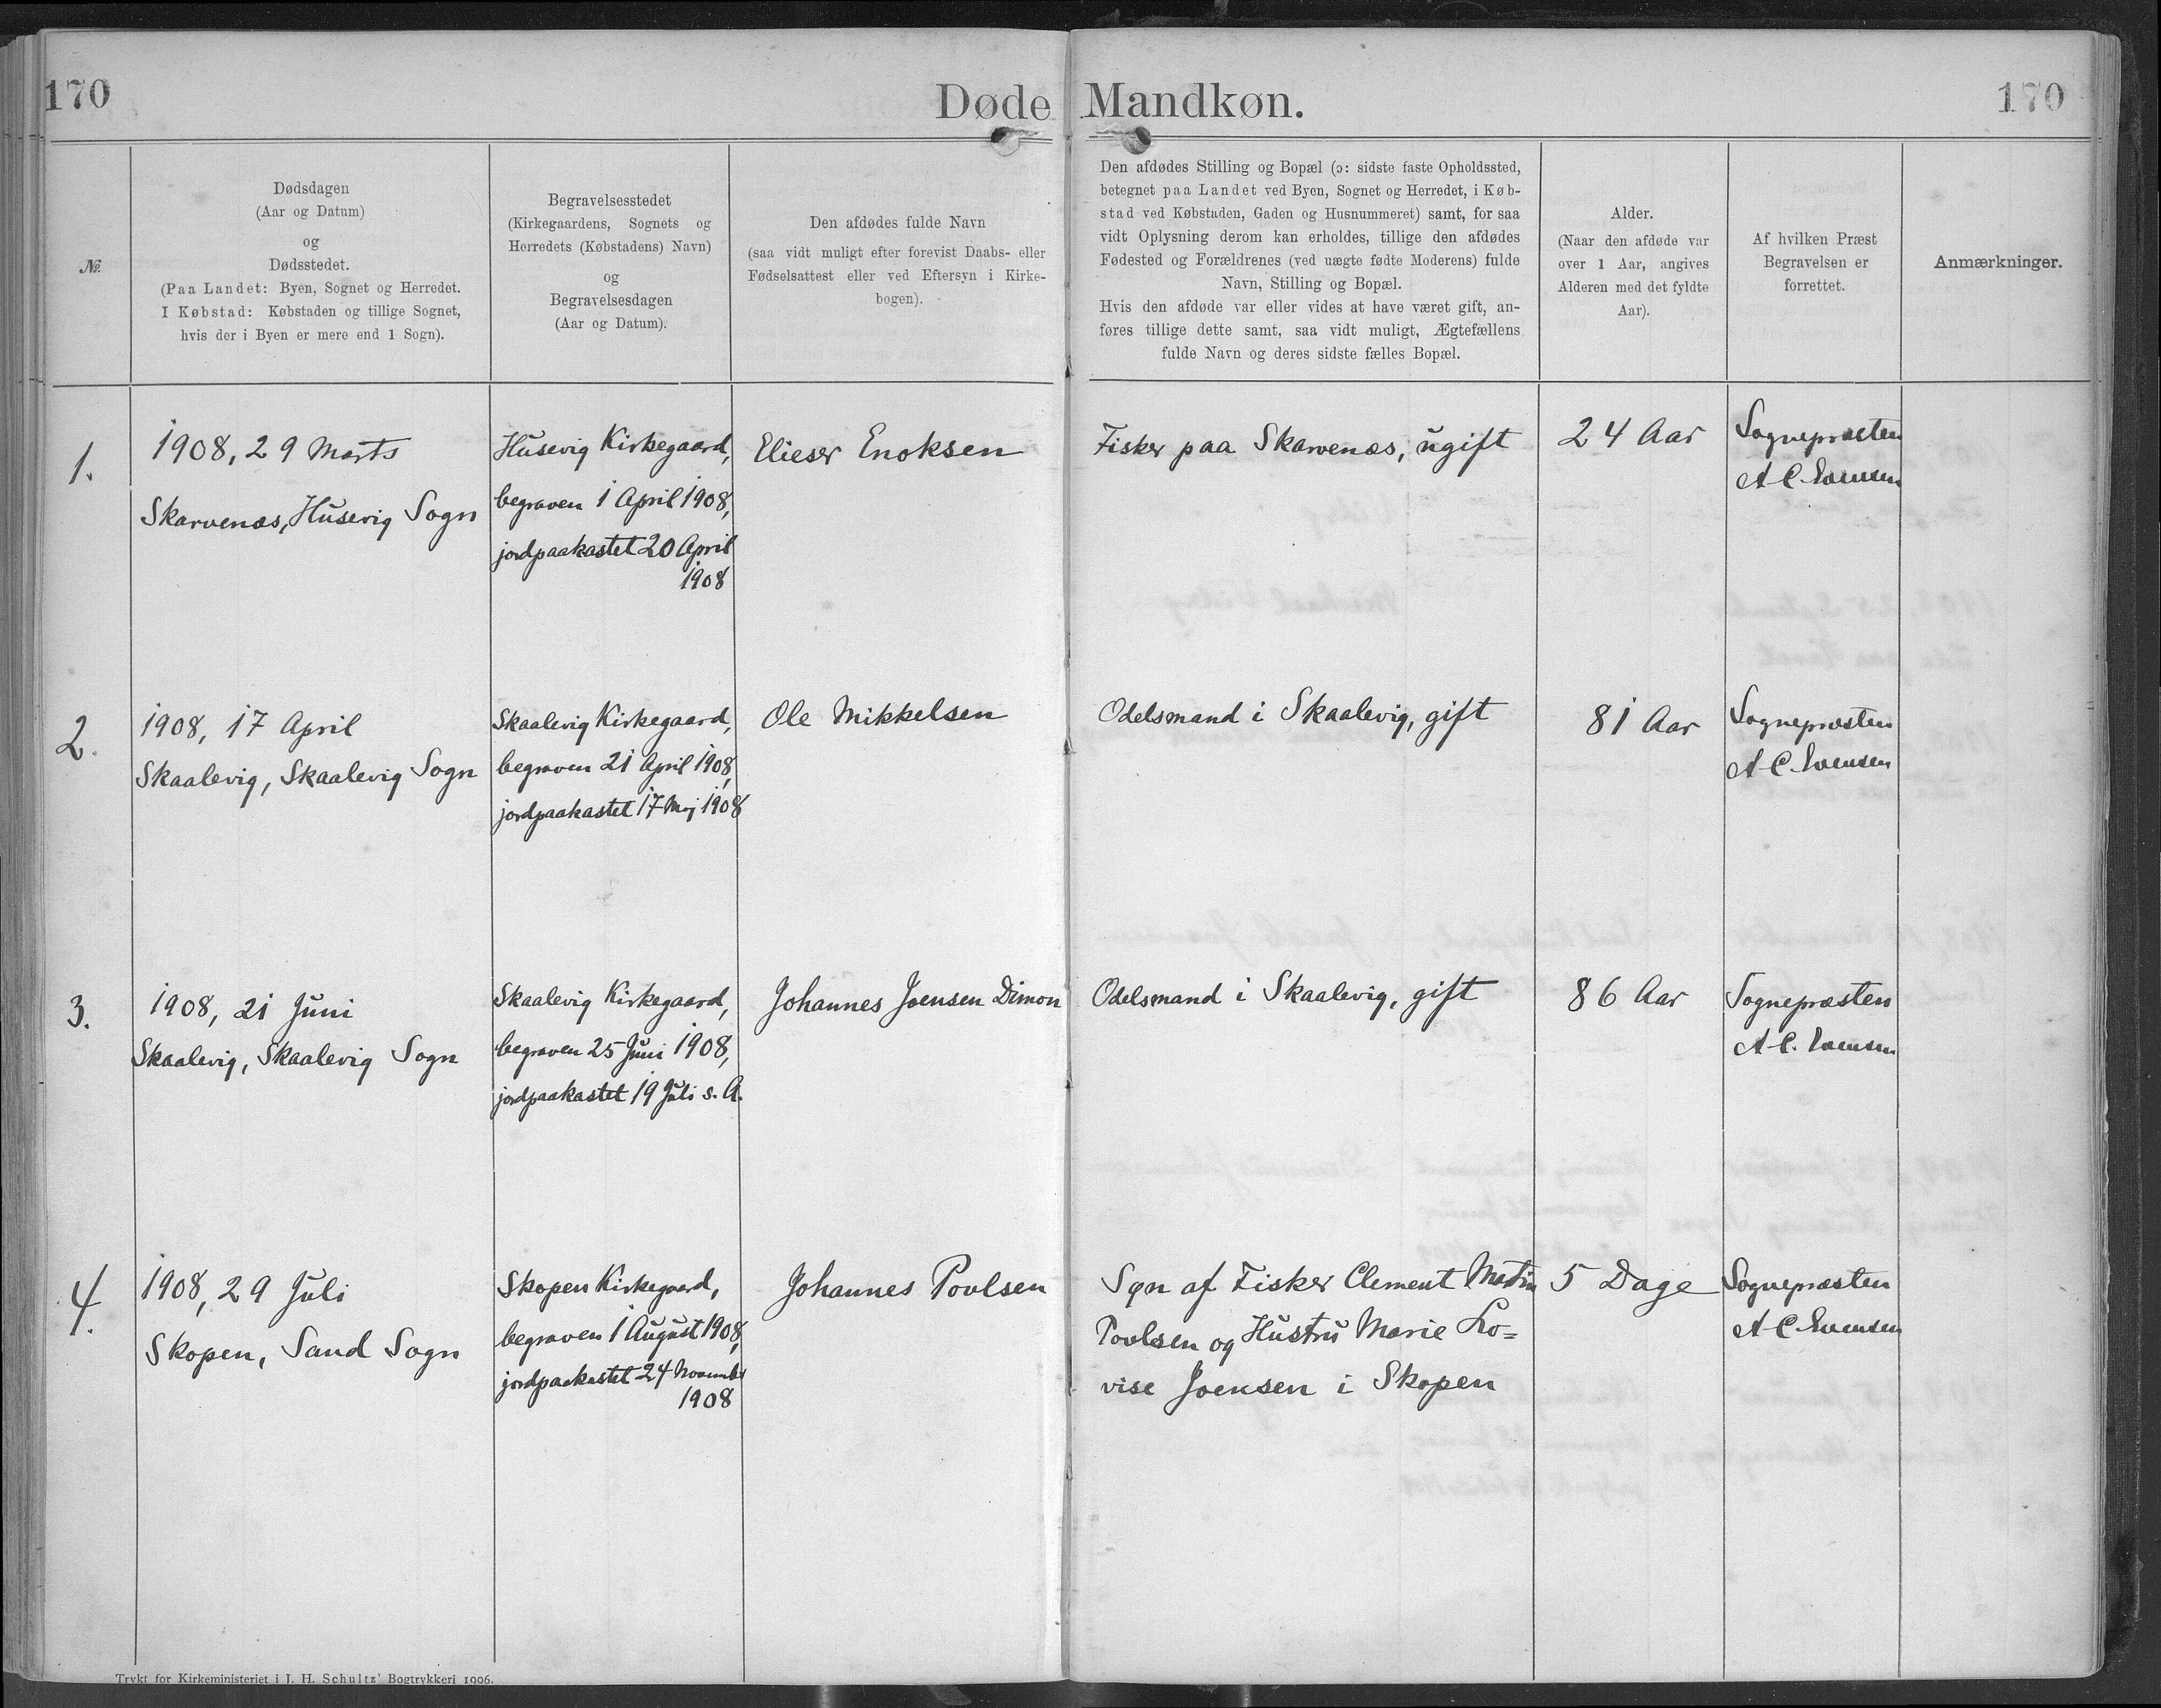 170
Døde Mandkøn.
170
№.
Dødsdagen
(Aar og Datum)
og
Dødsstedet.
(Paa Landet: Byen, Sognet og Herredet.
I Købstad: Købstaden og tillige Sognet,
hvis der i Byen er mere end 1 Sogn).
Begravelsesstedet
(Kirkegaardens, Sognets og
Herredets (Købstadens) Navn)
og
Begravelsesdagen
(Aar og Datum).
Den afdødes fulde Navn
(saa vidt muligt efter forevist Daabs- eller
Fødselsattest eller ved Eftersyn i Kirke-
bogen).
Den afdødes Stilling og Bopæl (ɔ: sidste faste Opholdssted,
betegnet paa Landet ved Byen, Sognet og Herredet, i Køb-
stad ved Købstaden, Gaden og Husnummeret) samt, for saa
vidt Oplysning derom kan erholdes, tillige den afdødes
Fødested og Forældrenes (ved uægte fødte Moderens) fulde
Navn, Stilling og Bopæl.
Hvis den afdøde var eller vides at have været gift, an-
føres tillige dette samt, saa vidt muligt, Ægtefællens
fulde Navn og deres sidste fælles Bopæl.
Alder.
(Naar den afdøde var
over 1 Aar, angives
Alderen med det fyldte
Aar).
Af hvilken Præst
Begravelsen er
forrettet.
Anmærkninger.
1.
1908, 29 Marts
Skarvenæs, Husevig Sogn
Husevig Kirkegaard,
begraven 1 April 1908,
jordpaakastet 20 April
1908
Elieser Enoksen
Fisker paa Skarvenæs, ugift
24 Aar
Sognepræsten
A C. Evensen
2.
1908, 17 April
Skaalevig, Skaalevig Sogn
Skaalevig Kirkegaard,
begraven 21 April 1908,
jordpaakastet 17 Maj 1908
Ole Mikkelsen
Odelsmand i Skaalevig, gift
81 Aar
Sognepræsten
A C. Evensen
3.
1908, 21 Juni
Skaalevig, Skaalevig Sogn
Skaalevig Kirkegaard,
begraven 25 Juni 1908,
jordpaakastet 19 Juli s. A.
Johannes Joensen Dimon
Odelsmand i Skaalevig, gift
86 Aar
Sognepræsten
A C. Evensen
4.
1908, 29 Juli
Skopen, Sand Sogn
Skopen Kirkegaard,
begraven 1 August 1908,
jordpaakastet 24 November
1908
Johannes Poulsen
Søn af Fisker Clement Martin
Poulsen og Hustru Marie Lo=
vise Joensen i Skopen
5 Dage
Sognepræsten
A C. Evensen
Trykt for Kirkeministeriet i J. H. Schultz' Bogtrykkeri 1906.